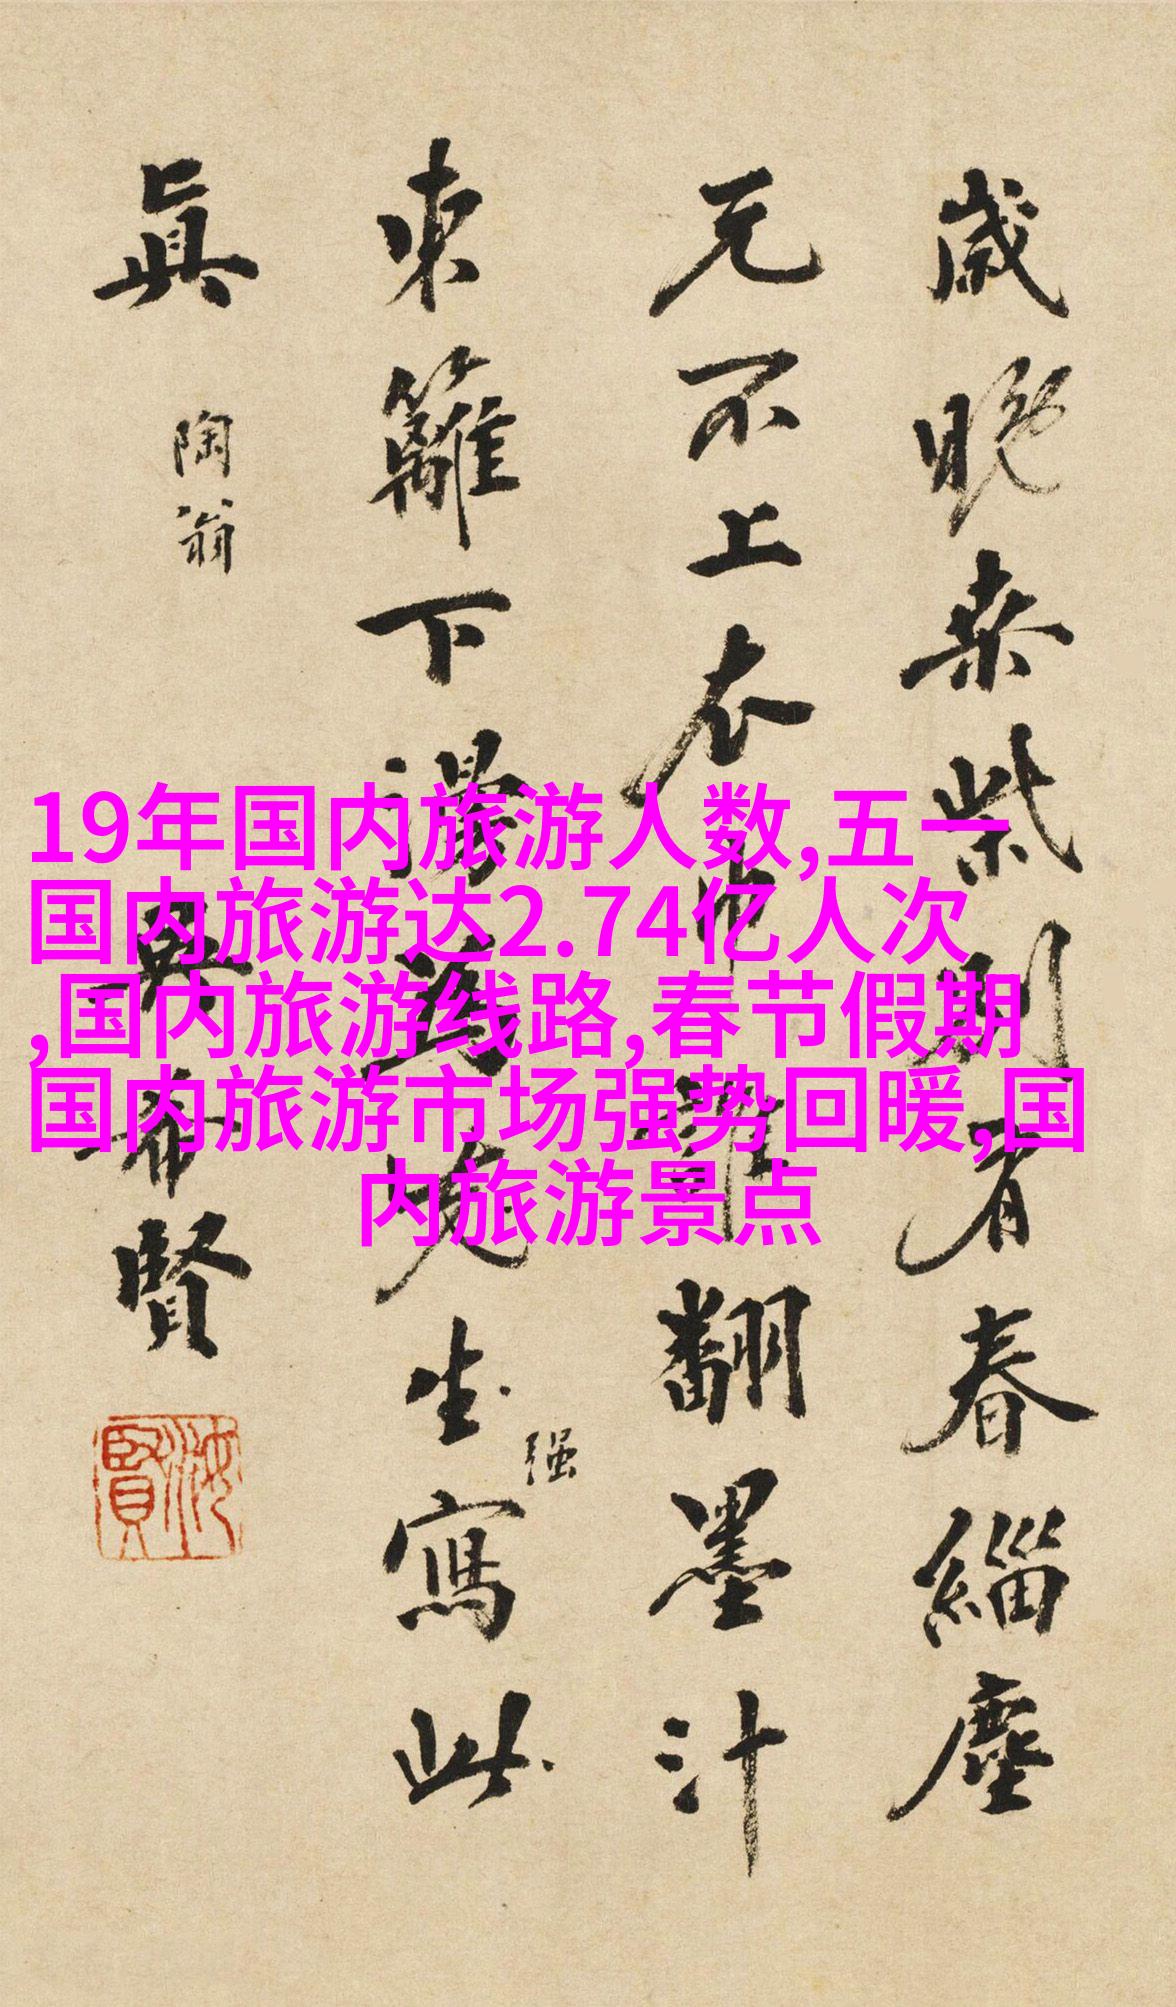 歲晚桒柴別有春緇塵
元不上衣巾誰翻墨汁
東籬下漫為先生寫此
强
眞
陶翁
吳希賢
汝賢
19年国内旅游人数,五一
国内旅游达2.74亿人次
,国内旅游线路,春节假期
国内旅游市场强势回暖,国
内旅游景点